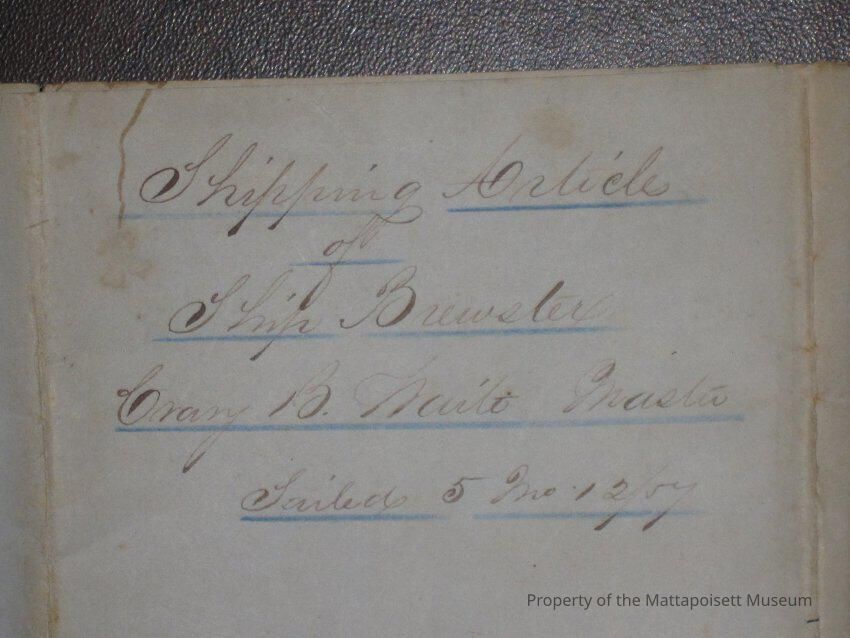 Shipping Article
of
Ship Brewster
Crary B. Waite Master
Sailed 5 Mo. 12/57
Property of the Mattapoisett Museum